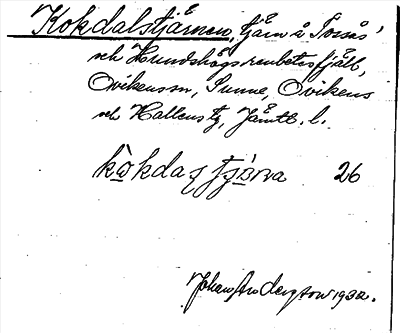 Kokdalstjärnen, tjärn å Tossås'
och Hundshögs renbetesfjäll,
Ovikens sn, Sunne, Ovikens
och Hallens tg, Jämtl. l.
kòkdas tjǻrna 26
Johan Anderzson 1932.